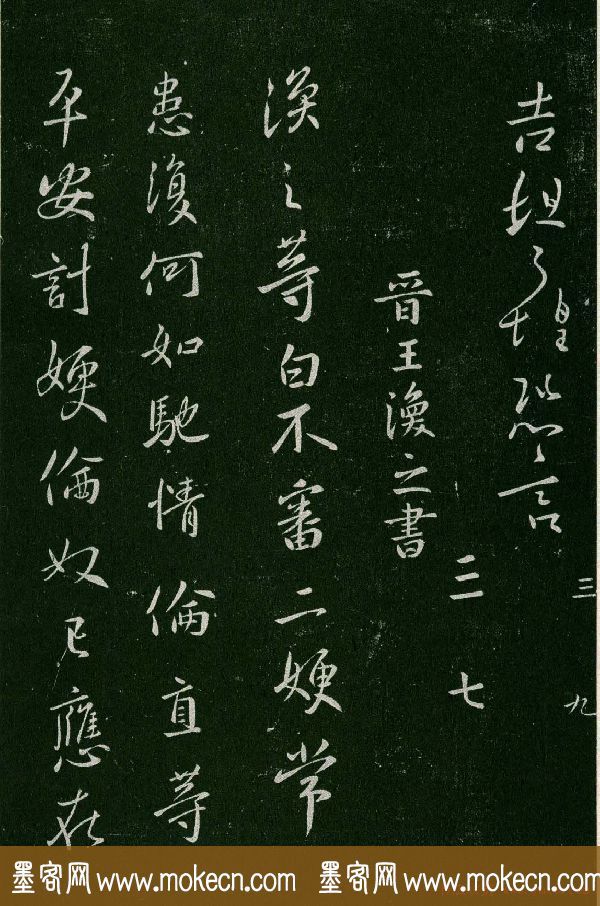 吉坦之惶恐言
三九
晉王渙之書
三七
渙之等白不審二嫂常
患復何如馳情倫直等
平安計嫂倫奴已應在
墨客网 www.mokecn.com 墨客网 www.mokecn.com